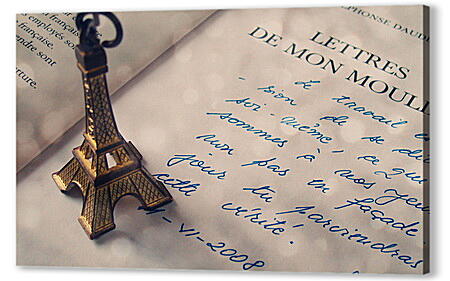 française.
employés sont
française.
endre sont
rture.
PHONSE DAUDE
LETTRES
DE MON MOUL
Le travail e
- bien de se du
soi-même, ce que
sommes à nos yeu
non pas en façade
jour tu parviendras
cette vérité!
VI-2008